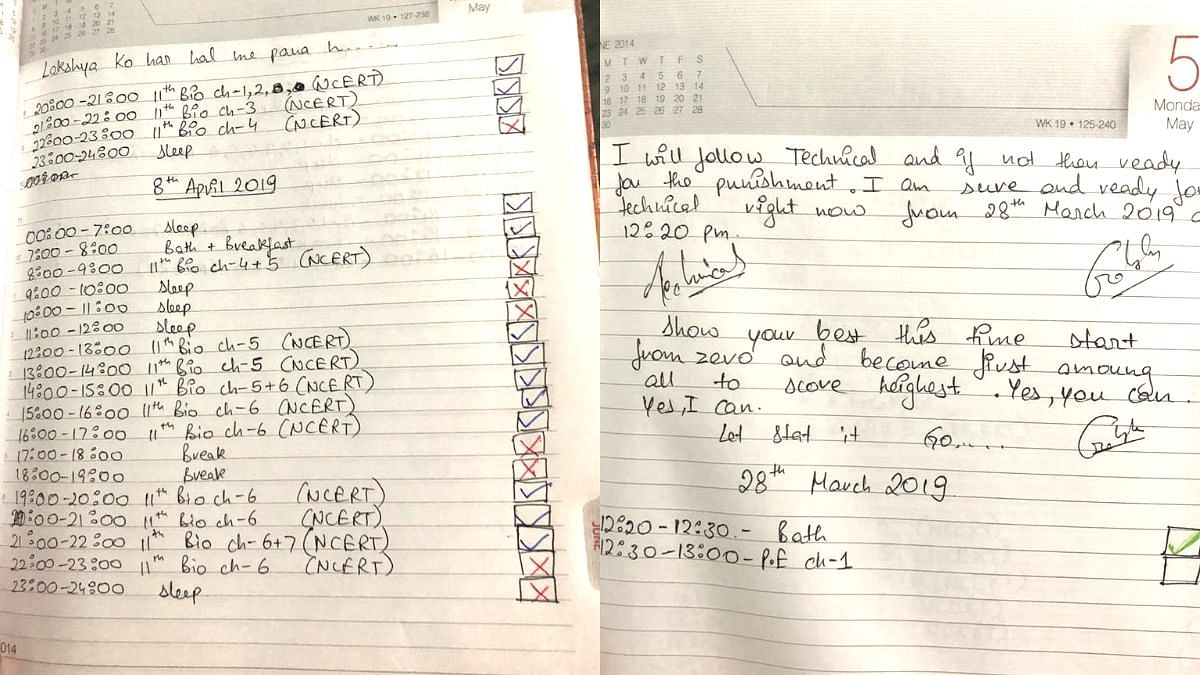 WK 19 • 127-238
May
Lakshya Ko har hal me pana h.....
20:00-21:00 11th Bio ch-1,2, (NCERT)
21:00-22:00 11th Bio ch-3 (NCERT)
22:00-23:00 11th Bio ch-4 (NCERT)
23:00-24:00 Sleep
8th April 2019
00:00-7:00 Sleep
7:00-8:00 Bath + Breakfast
8:00-9:00 11th Bio ch-4+5 (NCERT)
9:00-10:00 Sleep
10:00-11:00 Sleep
11:00-12:00 Sleep
12:00-13:00 11th Bio ch-5 (NCERT)
13:00-14:00 11th Bio ch-5 (NCERT)
14:00-15:00 11th Bio ch-5+6 (NCERT)
15:00-16:00 11th Bio ch-6 (NCERT)
16:00-17:00 11th Bio ch-6 (NCERT)
17:00-18:00 Break
18:00-19:00 Break
19:00-20:00 11th Bio ch-6 (NCERT)
20:00-21:00 11th Bio ch-6 (NCERT)
21:00-22:00 11th Bio ch-6+7 (NCERT)
22:00-23:00 11th Bio ch-6 (NCERT)
23:00-24:00 Sleep
014
NE 2014
M T W T F S
2 3 4 5 6 7
9 10 11 12 13 14
16 17 18 19 20 21
23 24 25 26 27 28
30
5
Monda
May
WK 19 • 125-240
I will follow Technical and if not then ready
for the punishment. I am sure and ready for
technical right now from 28th March 2019 a
12:20 pm.
Technical
Show your best this time start
from zero and become first amoung
all to score heighest. Yes, you can.
Yes, I can.
Let stat it Go.....
28th March 2019
12:20-12:30.- Bath
12:30-13:00- P.E ch-1
JUNE